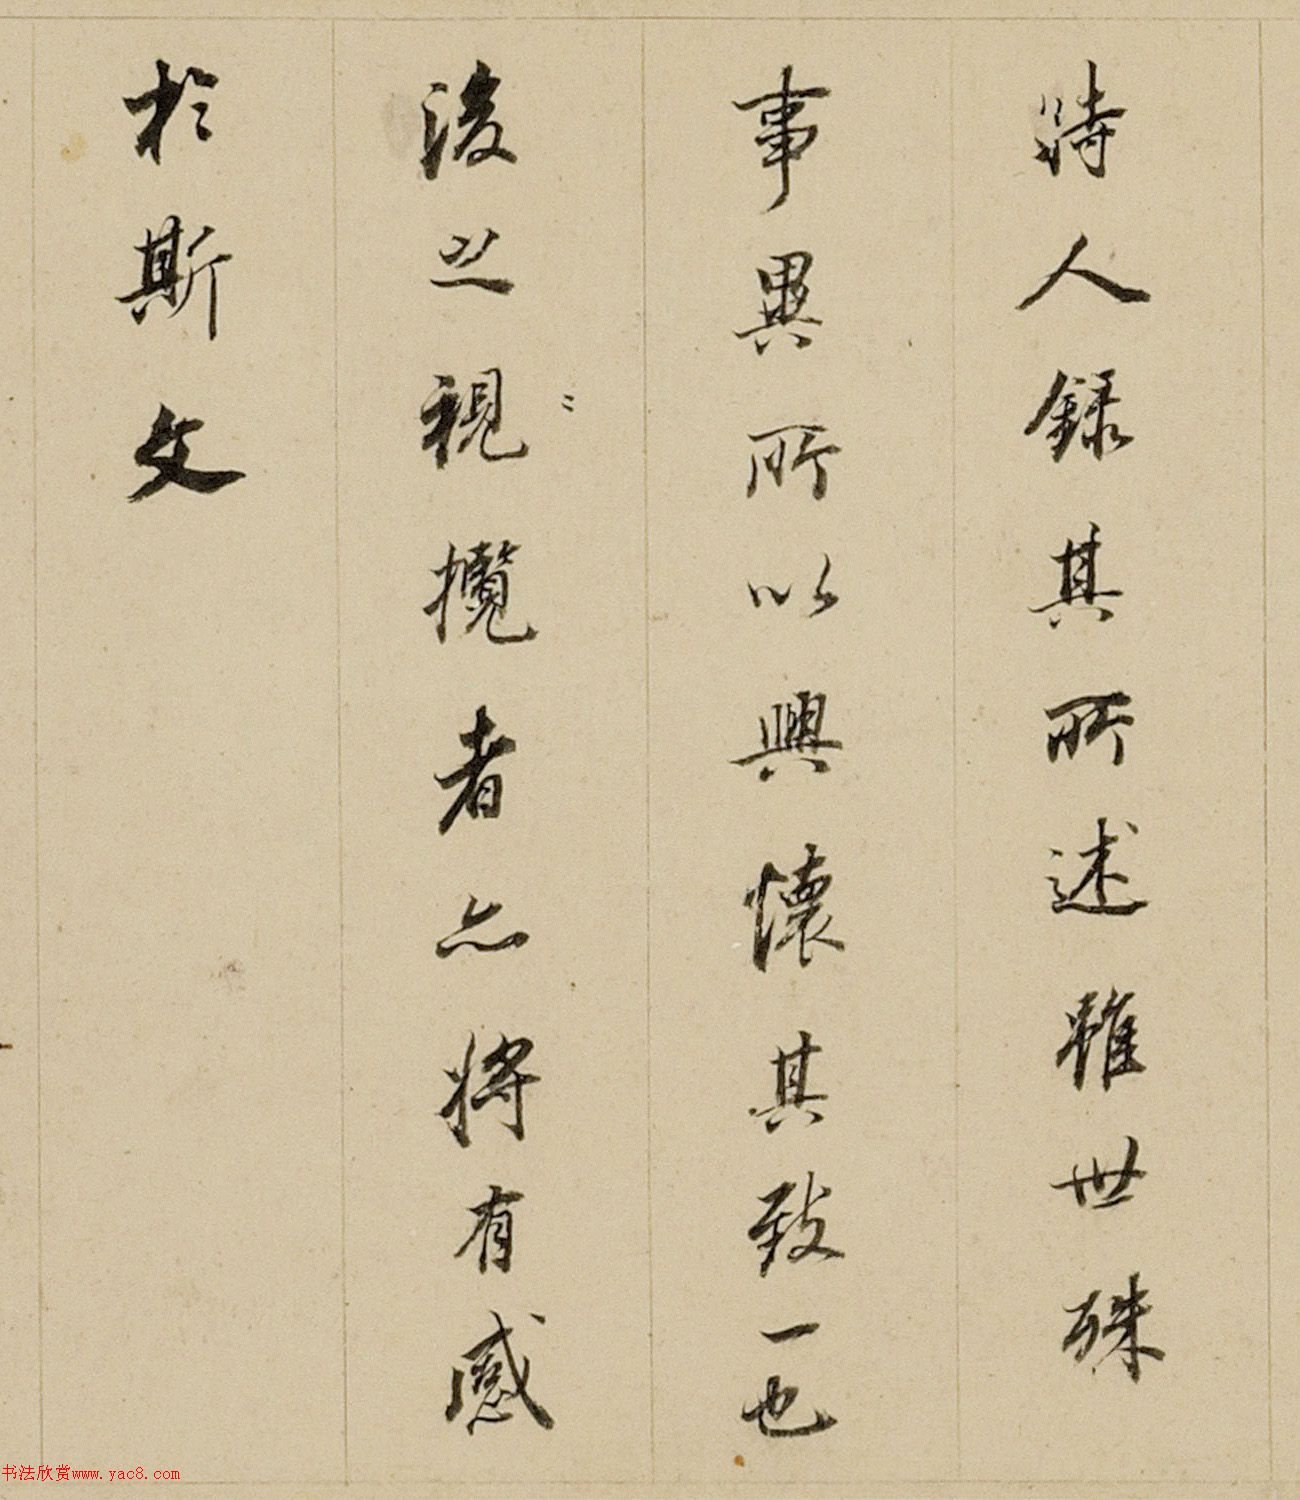 時人録其所述雖世殊
事異所以興懷其致一也
後之視攬者亦將有感
於斯文
书法欣赏www.yac8.com